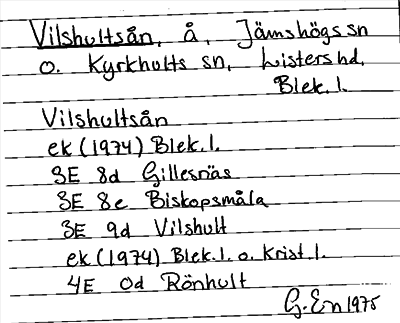 Vilshultsån, å, Jämshögs sn
o. Kyrkhults sn, Listers hd,
Blek. l.
Vilshultsån
ek (1974) Blek. l.
3E 8d Gillesnäs
3E 8e Biskopsmåla
3E 9d Vilshult
ek (1974) Blek. l. o. Krist. l.
4E 0d Rönhult
G. En 1975